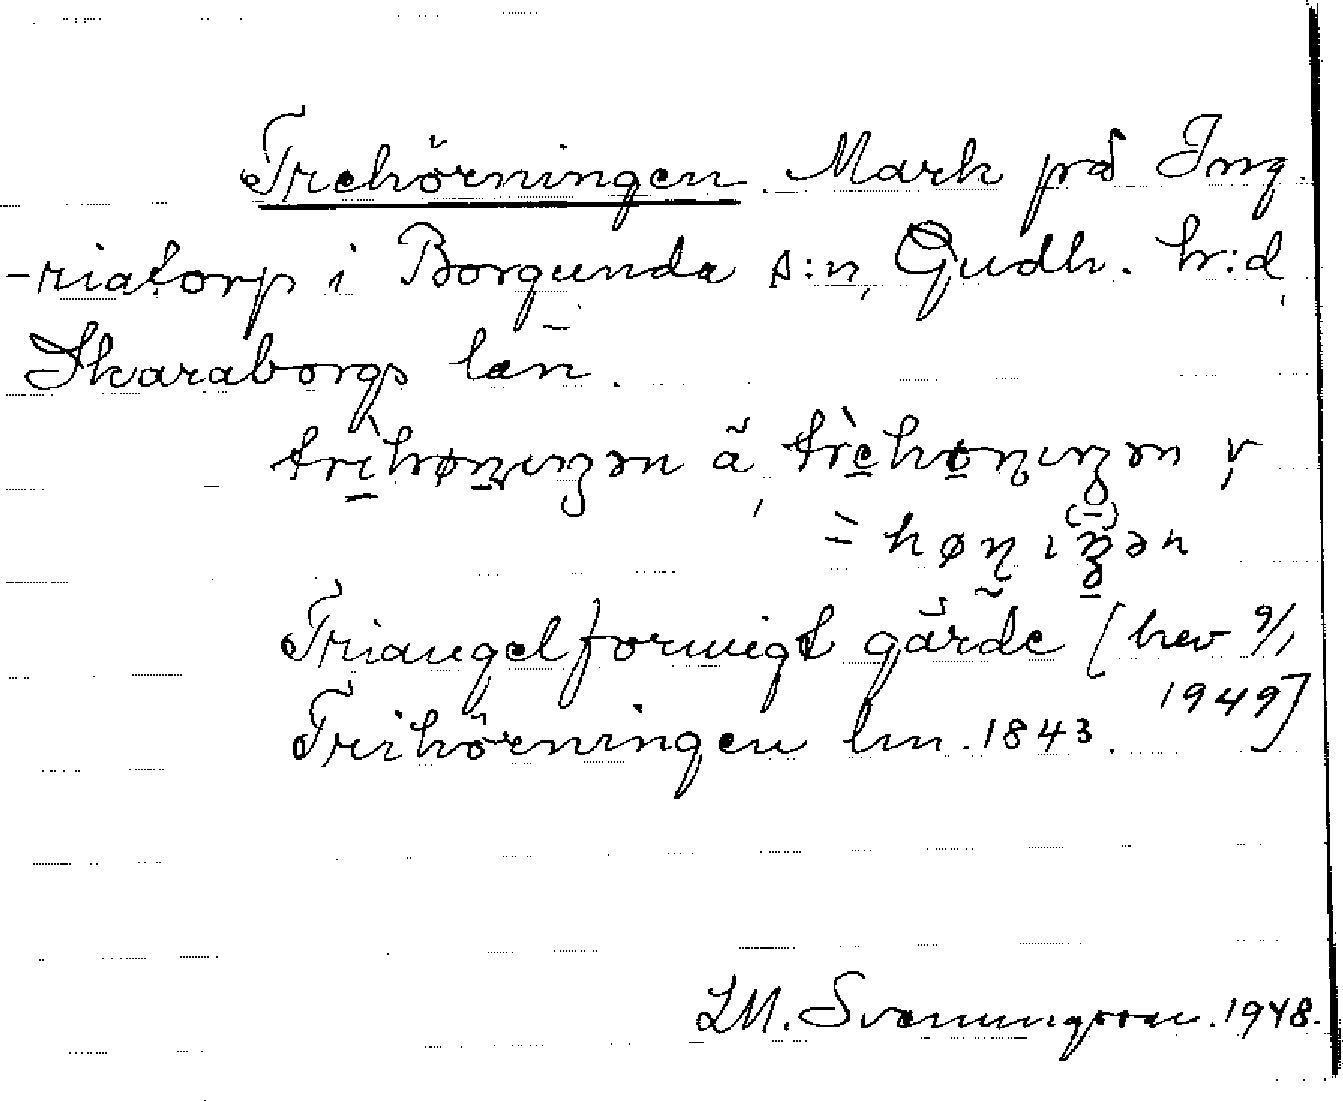 Trehörningen. Mark på Ing
-riatorp i Borgunda s:n, Gudh. h:d,
Skaraborgs län.
trìhøn̠ɩŋən ã, trèhøn̠ɩŋən ṛ
= hønɩŋən
Triangelformigt gärde [brev 9/1
1949]
Trihörningen lm. 1843.
LM. Svenungsson. 1948.